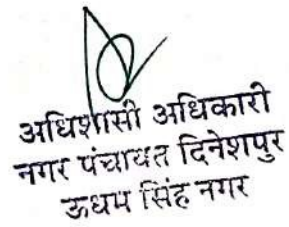 अधिशासी अधिकारी
नगर पंचायत दिनेशपुर
ऊधम सिंह नगर